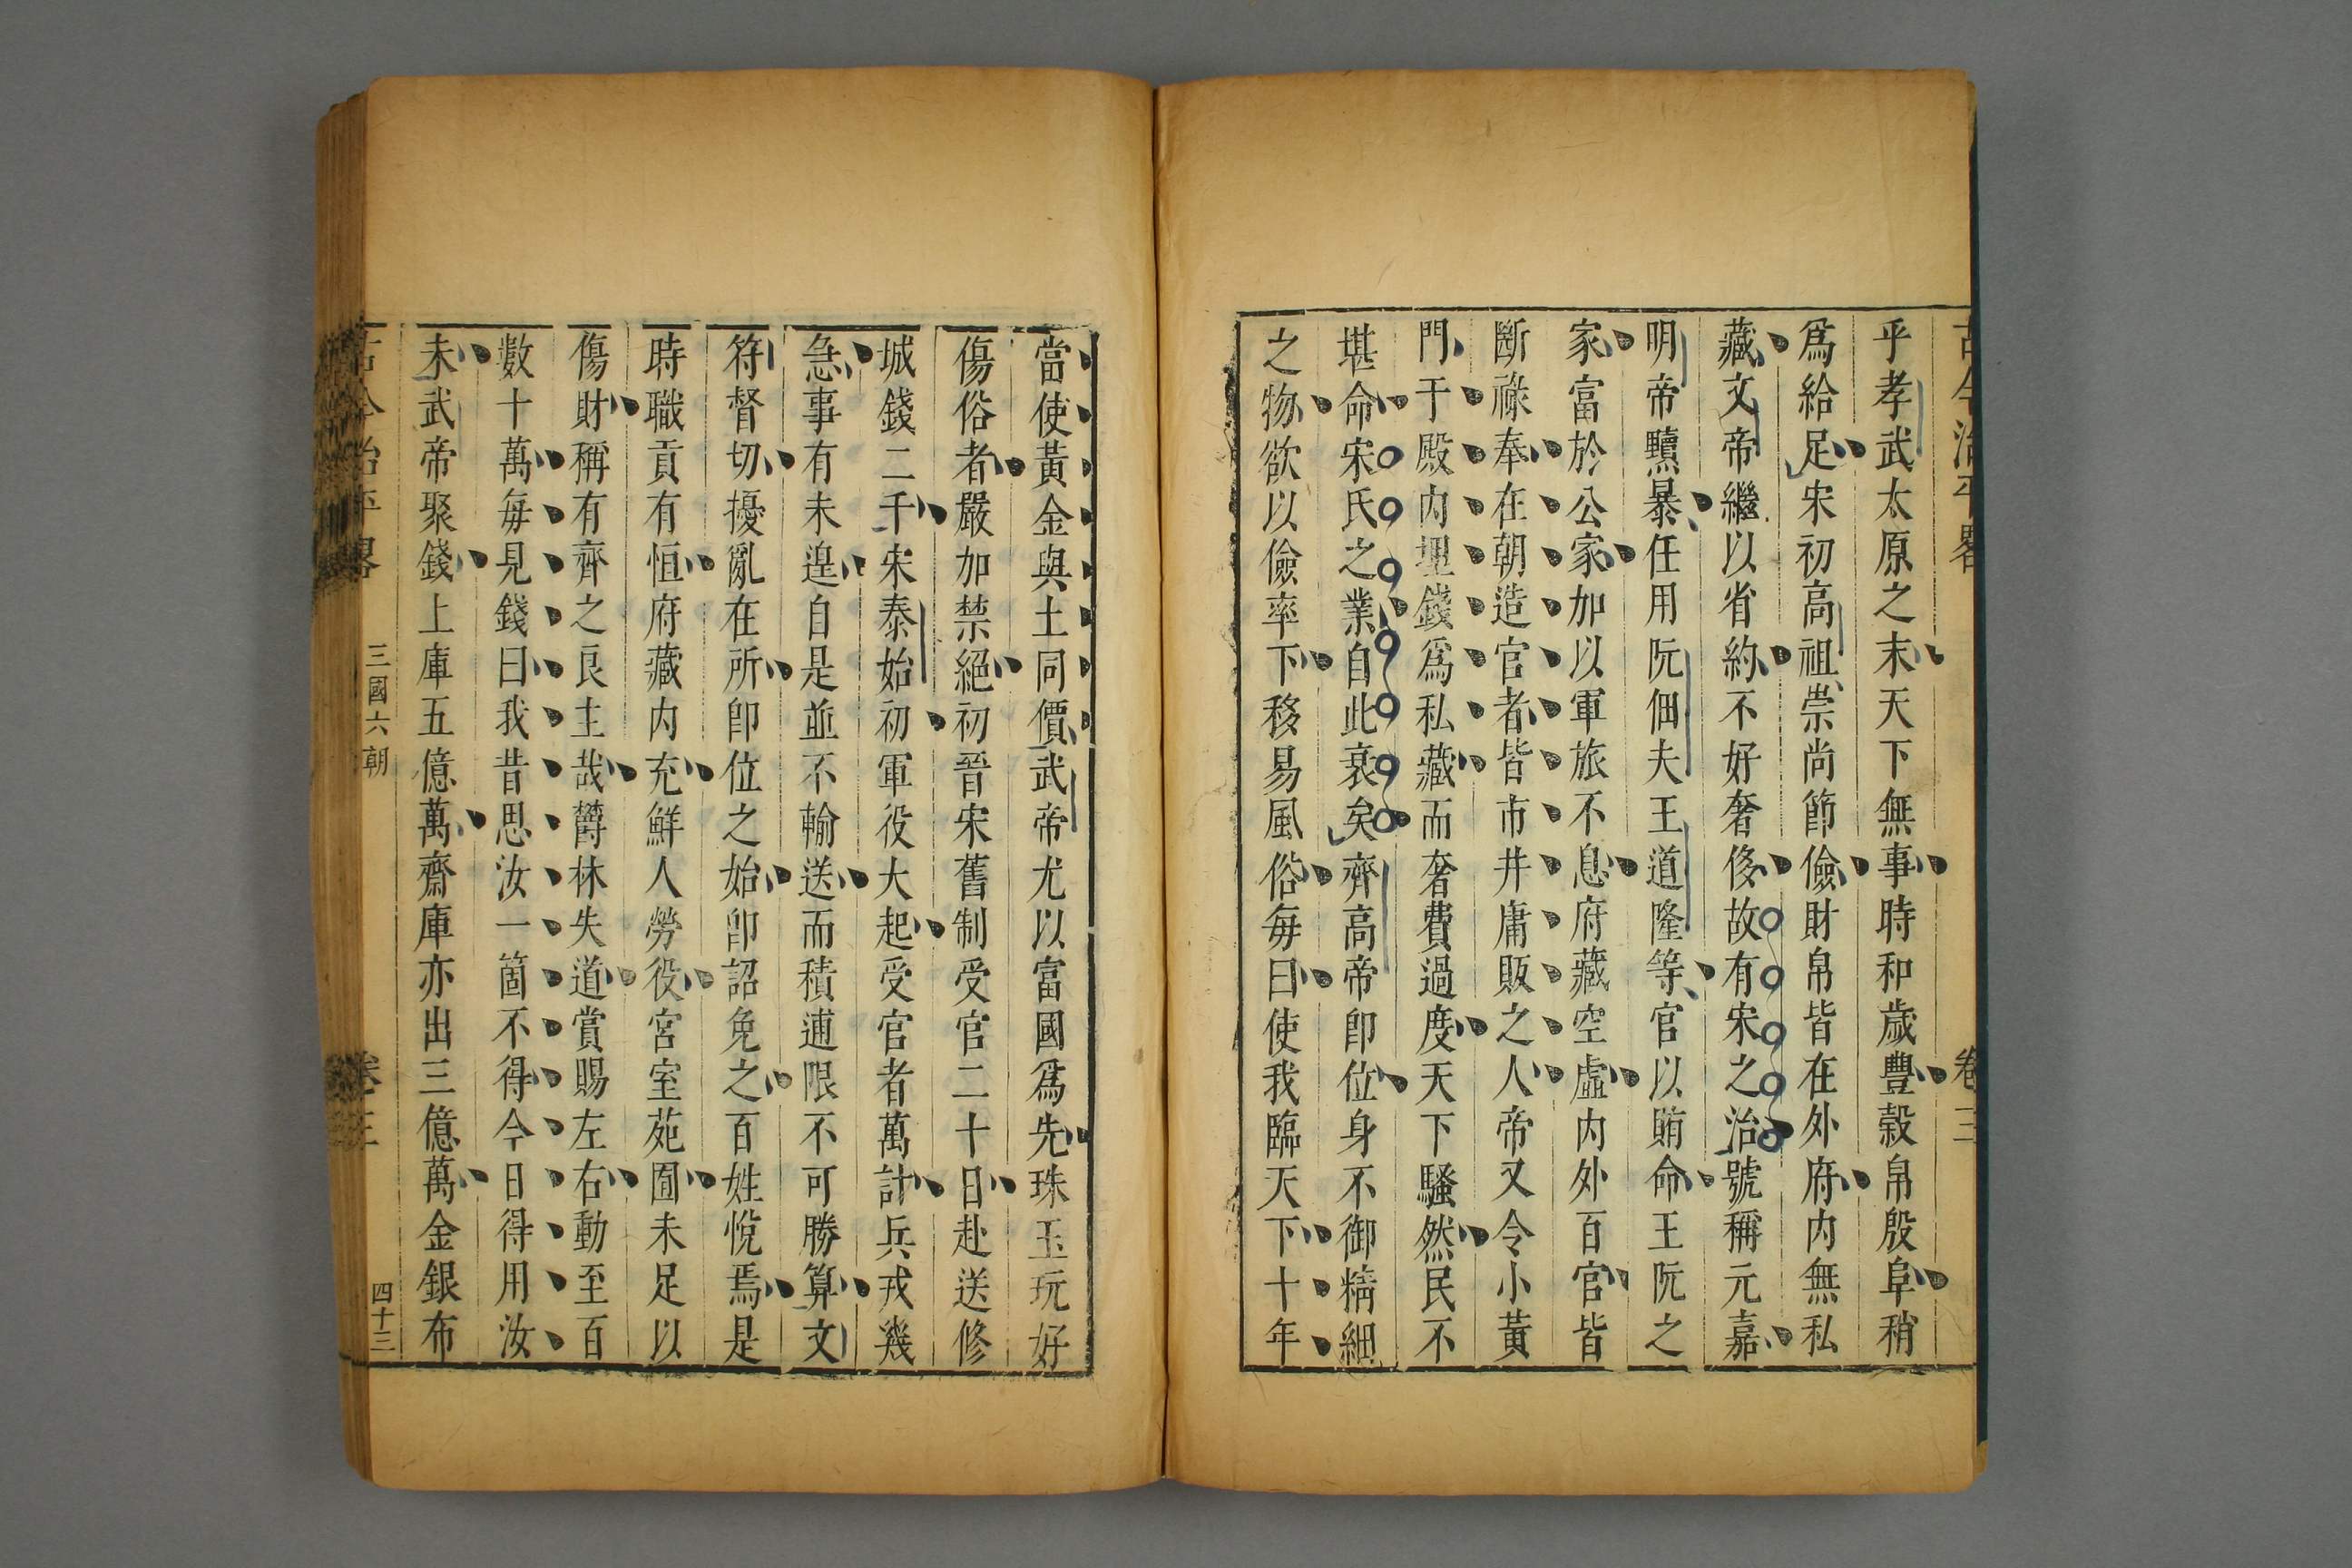 古今治平畧 卷三
乎孝武太原之末天下無事時和歲豐穀帛殷阜稍
爲給足宋初高祖崇尚節儉財帛皆在外府内無私
藏文帝繼以省約不好奢侈故有宋之治號稱元嘉
明帝驕暴任用阮佃夫王道隆等官以賄命王阮之
家富於公家加以軍旅不息府藏空虛内外百官皆
斷祿奉在朝造官者皆市井庸販之人帝又令小黃
門于殿内埋錢爲私藏而奢費過度天下騷然民不
堪命宋氏之業自此衰矣齊高帝卽位身不御精細
之物欲以儉率下移易風俗每曰使我臨天下十年
當使黃金與土同價武帝尤以富國爲先珠玉玩好
傷俗者嚴加禁絕初晉宋舊制受官二十日赴送修
城錢二千宋泰始初軍役大起受官者萬計兵戎機
急事有未遑自是並不輸送而積逋限不可勝算文
符督切擾亂在所卽位之始卽詔免之百姓悅焉是
時職貢有恒府藏内充鮮人勞役宮室苑囿未足以
傷財稱有齊之良主哉欝林失道賞賜左右動至百
數十萬每見錢曰我昔思汝一箇不得今日得用汝
未武帝聚錢上庫五億萬齋庫亦出三億萬金銀布
古今治平畧 三國六朝 卷三 四十三